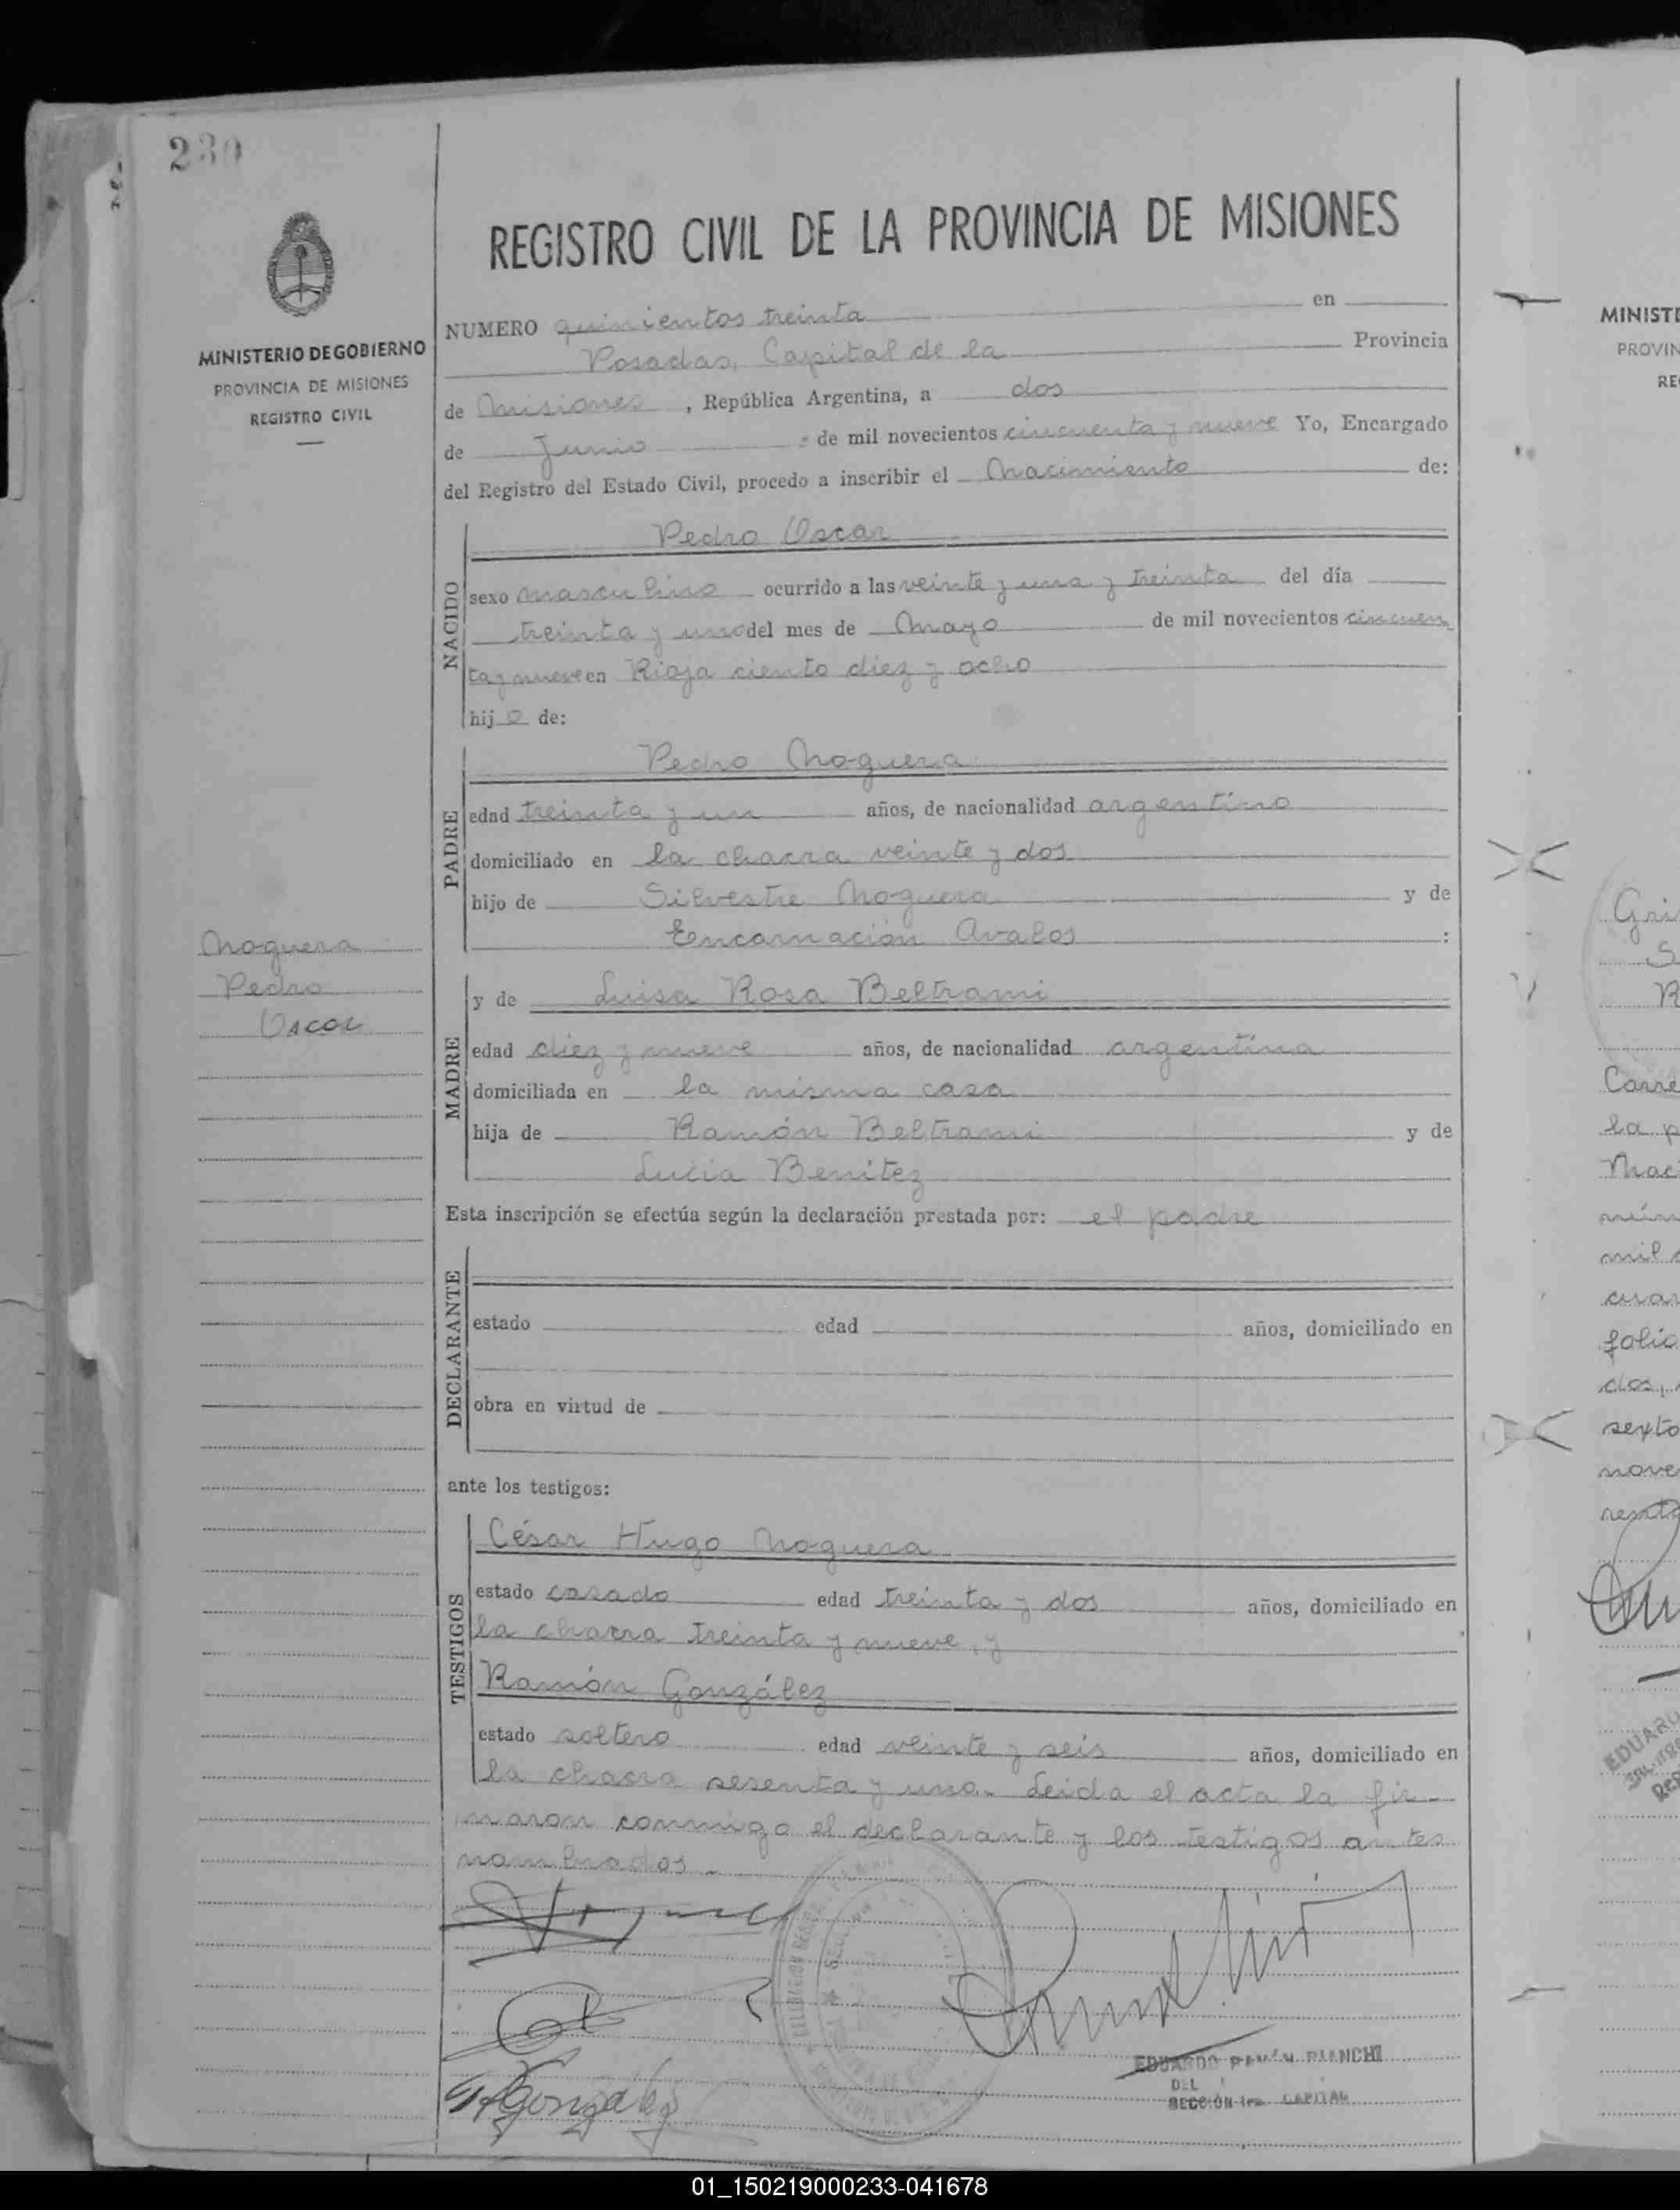 230
MINISTERIO DE GOBIERNO
PROVINCIA DE MISIONES
REGISTRO CIVIL
Noguera
Pedro
Oscar
REGISTRO CIVIL DE LA PROVINCIA DE MISIONES
NUMERO quinientos treinta en
Posadas, Capital de la Provincia
de Misiones, República Argentina, a dos
de Junio de mil novecientos cincuenta y nueve Yo, Encargado
del Registro del Estado Civil, procedo a inscribir el Nacimiento de:
NACIDO
Pedro Oscar
sexo masculino ocurrido a las veinte y una y treinta del día
treinta y uno del mes de Mayo de mil novecientos cincuen
ta y nueve en Rioja ciento diez y ocho
hijo de:
PADRE
Pedro Noguera
edad treinta y un años, de nacionalidad argentino
domiciliado en la chacra veinte y dos
hijo de Silvestre Noguera y de
Encarnación Avalos :
MADRE
y de Luisa Rosa Beltrami
edad diez y nueve años, de nacionalidad argentina
domiciliada en la misma casa
hija de Ramón Beltrami y de
Lucia Benitez
Esta inscripción se efectúa según la declaración prestada por: el padre
DECLARANTE
estado edad años, domiciliado en
obra en virtud de
ante los testigos:
TESTIGOS
César Hugo Noguera
estado casado edad treinta y dos años, domiciliado en
la chacra treinta y nueve, y
Ramón González
estado soltero edad veinte y seis años, domiciliado en
la chacra sesenta y uno. Leida el acta la fir-
maron conmigo el declarante y los testigos antes
nombrados.-
González
EDUARDO RAMÓN BIANCHI
DEL
SECCIÓN 1ra. CAPITAL
MINISTE
PROVIN
RE
Gri
S
R
Carre
la p
Naci
mil
folio
dos,
sexto
nove
EDUARD
01_150219000233-041678